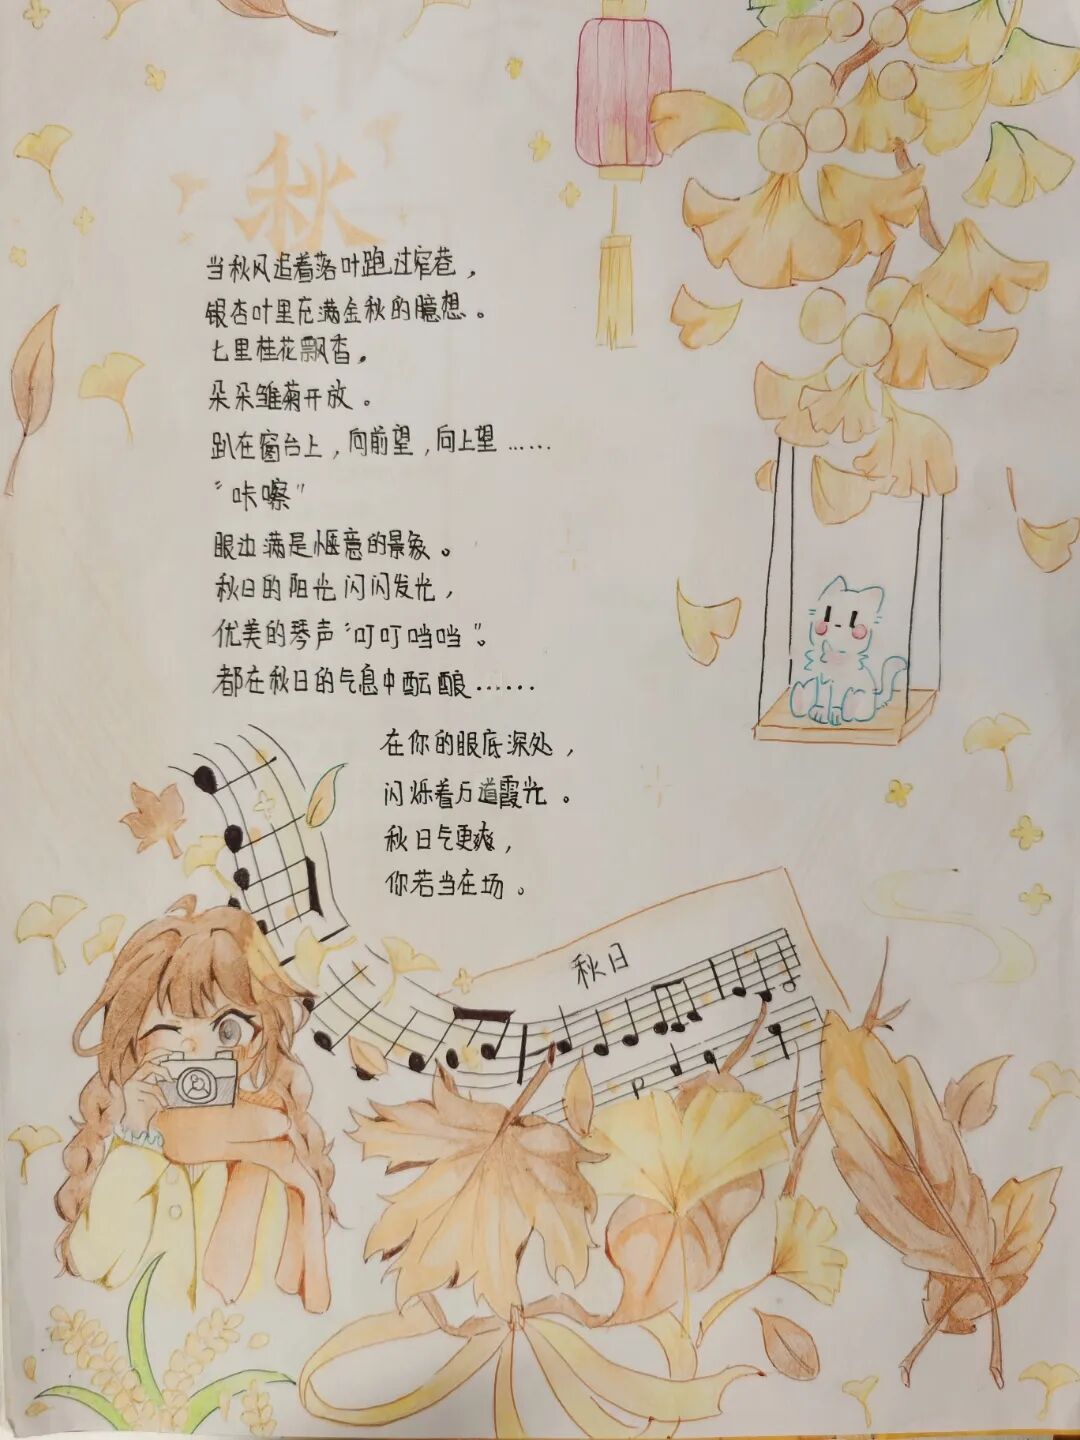 秋
当秋风追着落叶跑过窄巷，
银杏叶里充满金秋的臆想。
七里桂花飘香，
朵朵雏菊开放。
趴在窗台上，向前望，向上望……
“咔嚓”
眼边满是惬意的景象。
秋日的阳光闪闪发光，
优美的琴声“叮叮当当”。
都在秋日的气息中酝酿……
在你的眼底深处，
闪烁着万道霞光。
秋日气更爽，
你若当在场。
秋日